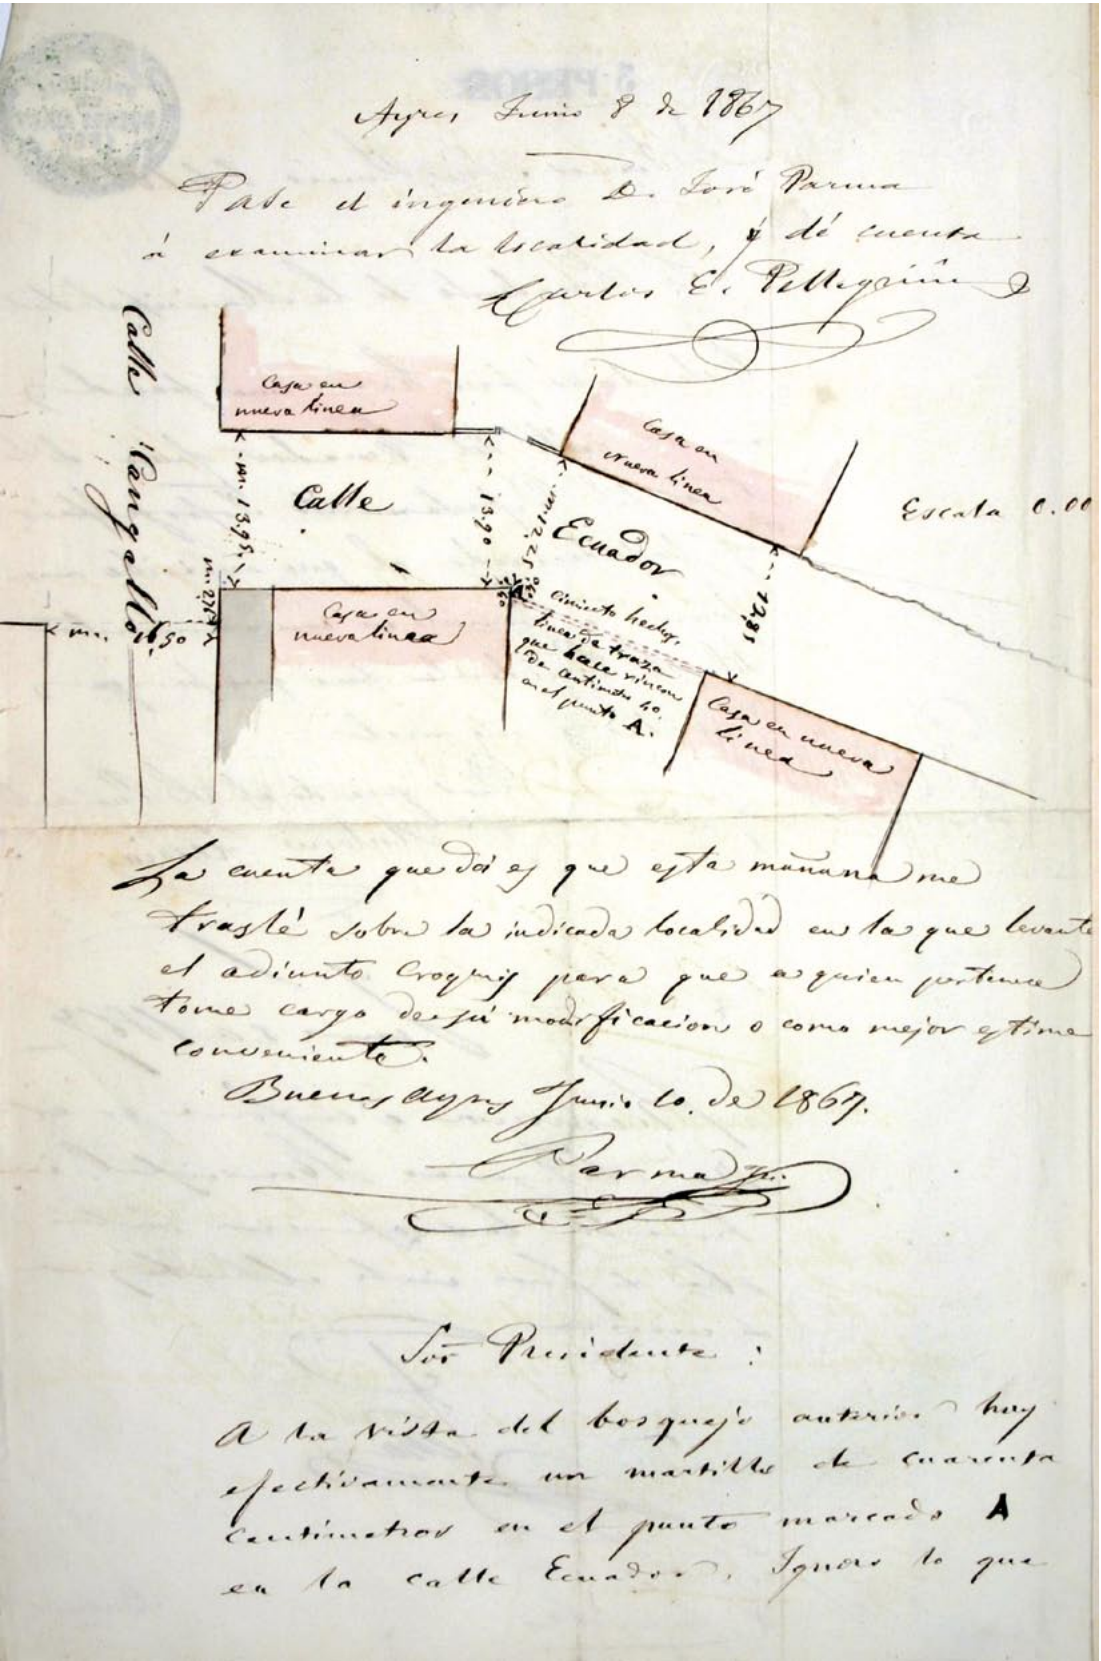 Ayres Junio 8 de 1867
Pase el ingeniero D. José Parma
á examinar la localidad, y dé cuenta
Carlos E. Pellegrini
Calle Cangallo
Casa en
nueva linea
Casa en
Nueva linea
m. 13,95.
Calle
13,90
m 12,25
Ecuador
Escala 0.00
12,85
m.
16,50
Casa en
nueva linea
A
cimiento hecho,
linea de traza
que hace rincon
de centimetros 40.
en el punto A.
Casa en nueva
linea
La cuenta que doi es que esta mañana me
traslé sobre la indicada localidad en la que levante
el adiunto Croquis para que a quien pertenece
tome cargo de su modificacion o como mejor estime
conveniente.
Buenos Ayres Junio 10. de 1867.
Parma
Sor Presidente:
A la vista del bosquejo anterior hay
efectivamente un martillo de cuarenta
centímetros en el punto marcado A
en la calle Ecuador. Ignoro lo que